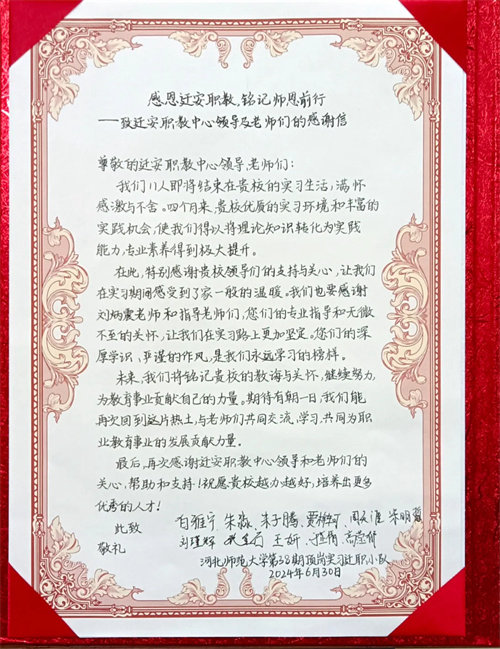 感恩迁安职教,铭记师恩前行
——致迁安职教中心领导及老师们的感谢信
尊敬的迁安职教中心领导、老师们:
我们11人即将结束在贵校的实习生活,满怀
感激与不舍。四个月来,贵校优质的实习环境和丰富的
实践机会,使我们得以将理论知识转化为实践
能力,专业素养得到极大提升。
在此,特别感谢贵校领导们的支持与关心,让我们
在实习期间感受到了家一般的温暖。我们也要感谢
刘炳震老师和指导老师们,您们的专业指导和无微
不至的关怀,让我们在实习路上更加坚定。您们的深
厚学识、严谨的作风,是我们永远学习的榜样。
未来,我们将铭记贵校的教诲与关怀,继续努力,
为教育事业贡献自己的力量。期待有朝一日,我们能
再次回到这片热土,与老师们共同交流、学习,共同为职
业教育事业的发展贡献力量。
最后,再次感谢迁安职教中心领导和老师们的
关心、帮助和支持!祝愿贵校越办越好,培养出更多
优秀的人才!
此致 朱淼 朱子腾
敬礼 王妍
河北师范大学第38期顶岗实习迁职小队
2024年6月30日